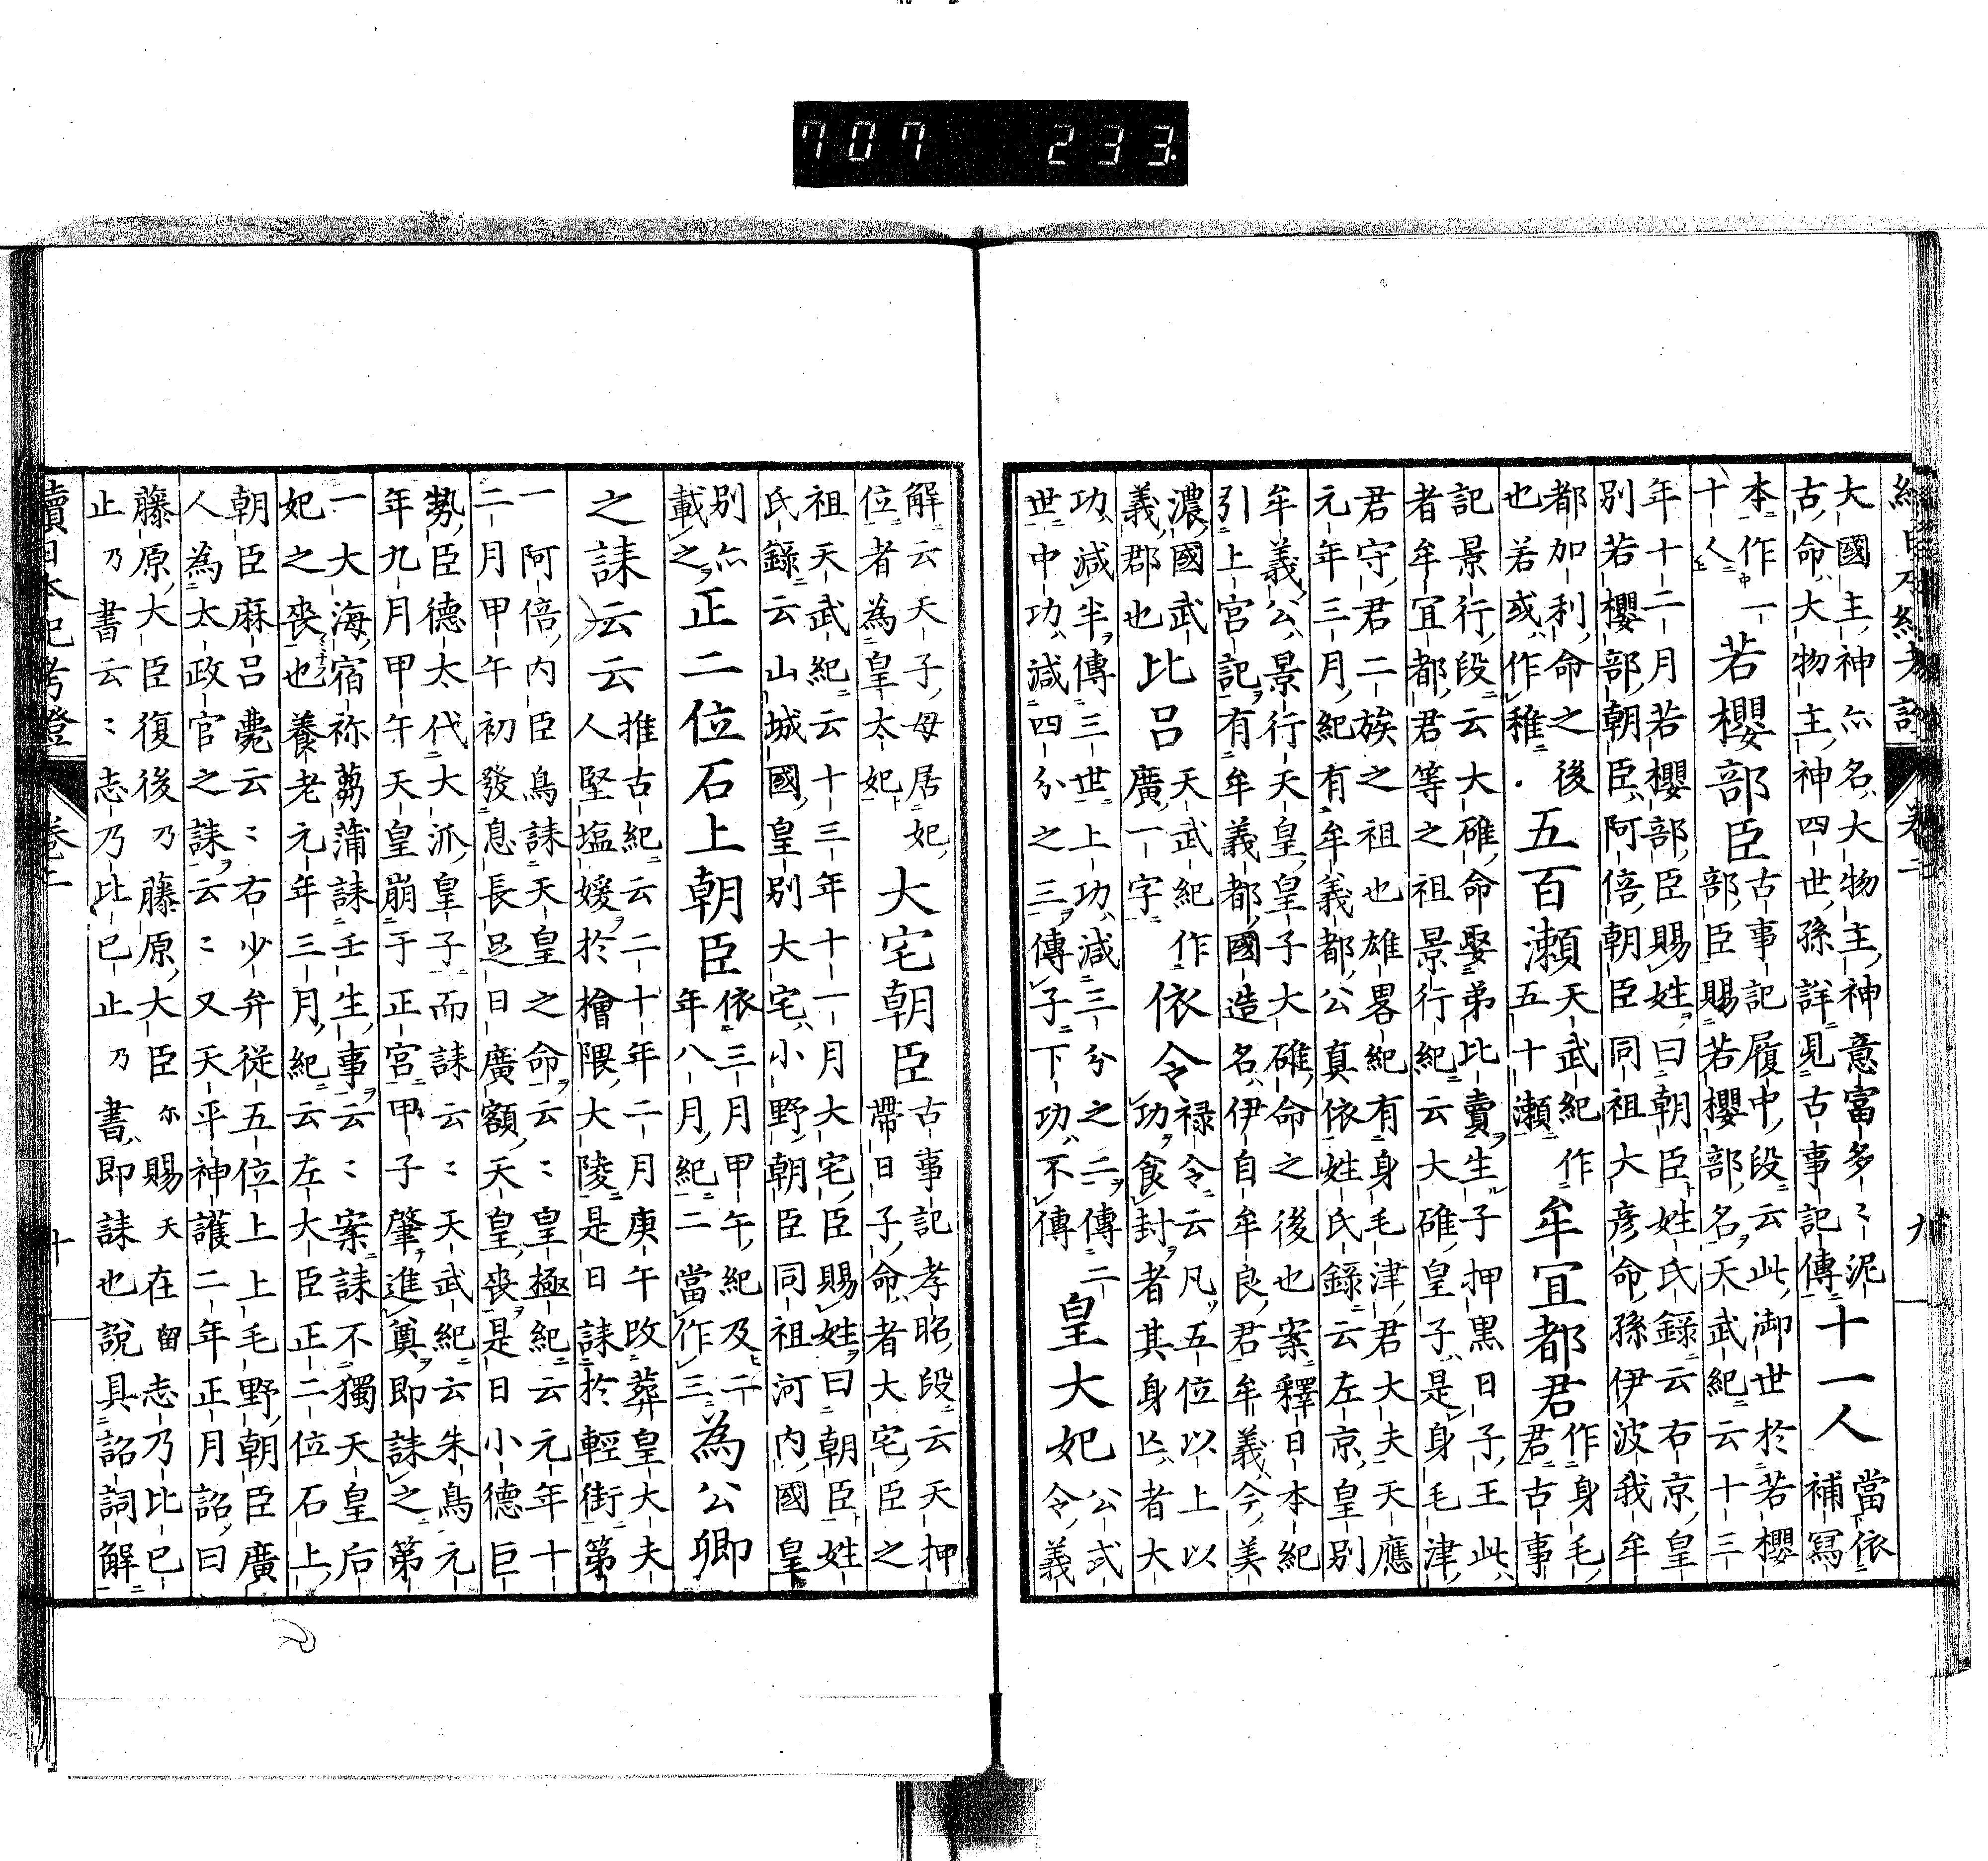 續日本紀考證　卷二　九
大國主神亦名大物主神意富多〻泥
古命大物主神四世孫詳見古事記傳
十一人
當依
補寫
本作一
十人
若櫻部臣
古事記履中段云此御世於若櫻
部臣賜若櫻部名天武紀云十三
年十二月若櫻部臣賜姓曰朝臣姓氏錄云右京皇
別若櫻部朝臣阿倍朝臣同祖大彦命孫伊波我牟
都加利命之後
也若或作稚
五百瀬
天武紀作
五十瀬
牟宜都君
作身毛
君古事
記景行段云大碓命娶弟比賣生子押黒日子王此
者牟宜都君等之祖景行紀云大碓皇子是身毛津
君守君二族之祖也雄畧紀有身毛津君大夫天應
元年三月紀有牟義都公真依姓氏錄云左京皇別
牟義公景行天皇皇子大碓命之後也案釋日本紀
引上宮記有牟義都國造名伊自牟良君牟義今美
濃國武
義郡也
比呂
天武紀作
廣一字
依令
禄令云凡五位以上以
功食封者其身亡者大
功減半傳三世上功減三分之二傳二
世中功減四分之三傳子下功不傳
皇大妃
公式
令義
解云天子母居妃
位者為皇太妃
大宅朝臣
古事記孝昭段云天押
帶日子命者大宅臣之
祖天武紀云十三年十一月大宅臣賜姓曰朝臣姓
氏錄云山城國皇別大宅小野朝臣同祖河内國皇
別亦
載之
正二位石上朝臣
依三月甲午紀及二
年八月紀二當作三
為公卿
之誄云云
推古紀云二十年二月庚午改葬皇大夫
人堅塩媛於檜隈大陵是日誄於輕街第
一阿倍内臣鳥誄天皇之命云〻皇極紀云元年十
二月甲午初發息長足日廣額天皇喪是日小德巨
勢臣德太代大派皇子而誄云〻天武紀云朱鳥元
年九月甲午天皇崩于正宮甲子肇進奠即誄之第
一大海宿祢蒭蒲誄壬生事云〻案誄不獨天皇后
妃之喪也養老元年三月紀云左大臣正二位石上
朝臣麻呂薨云〻右少弁従五位上上毛野朝臣廣
人為太政官之誄云〻又天平神護二年正月詔曰
藤原大臣復後乃藤原大臣尓賜天在留志乃比已
止乃書云〻志乃比已止乃書即誄也說具詔詞解
續日本紀考證　卷二　十
707　233